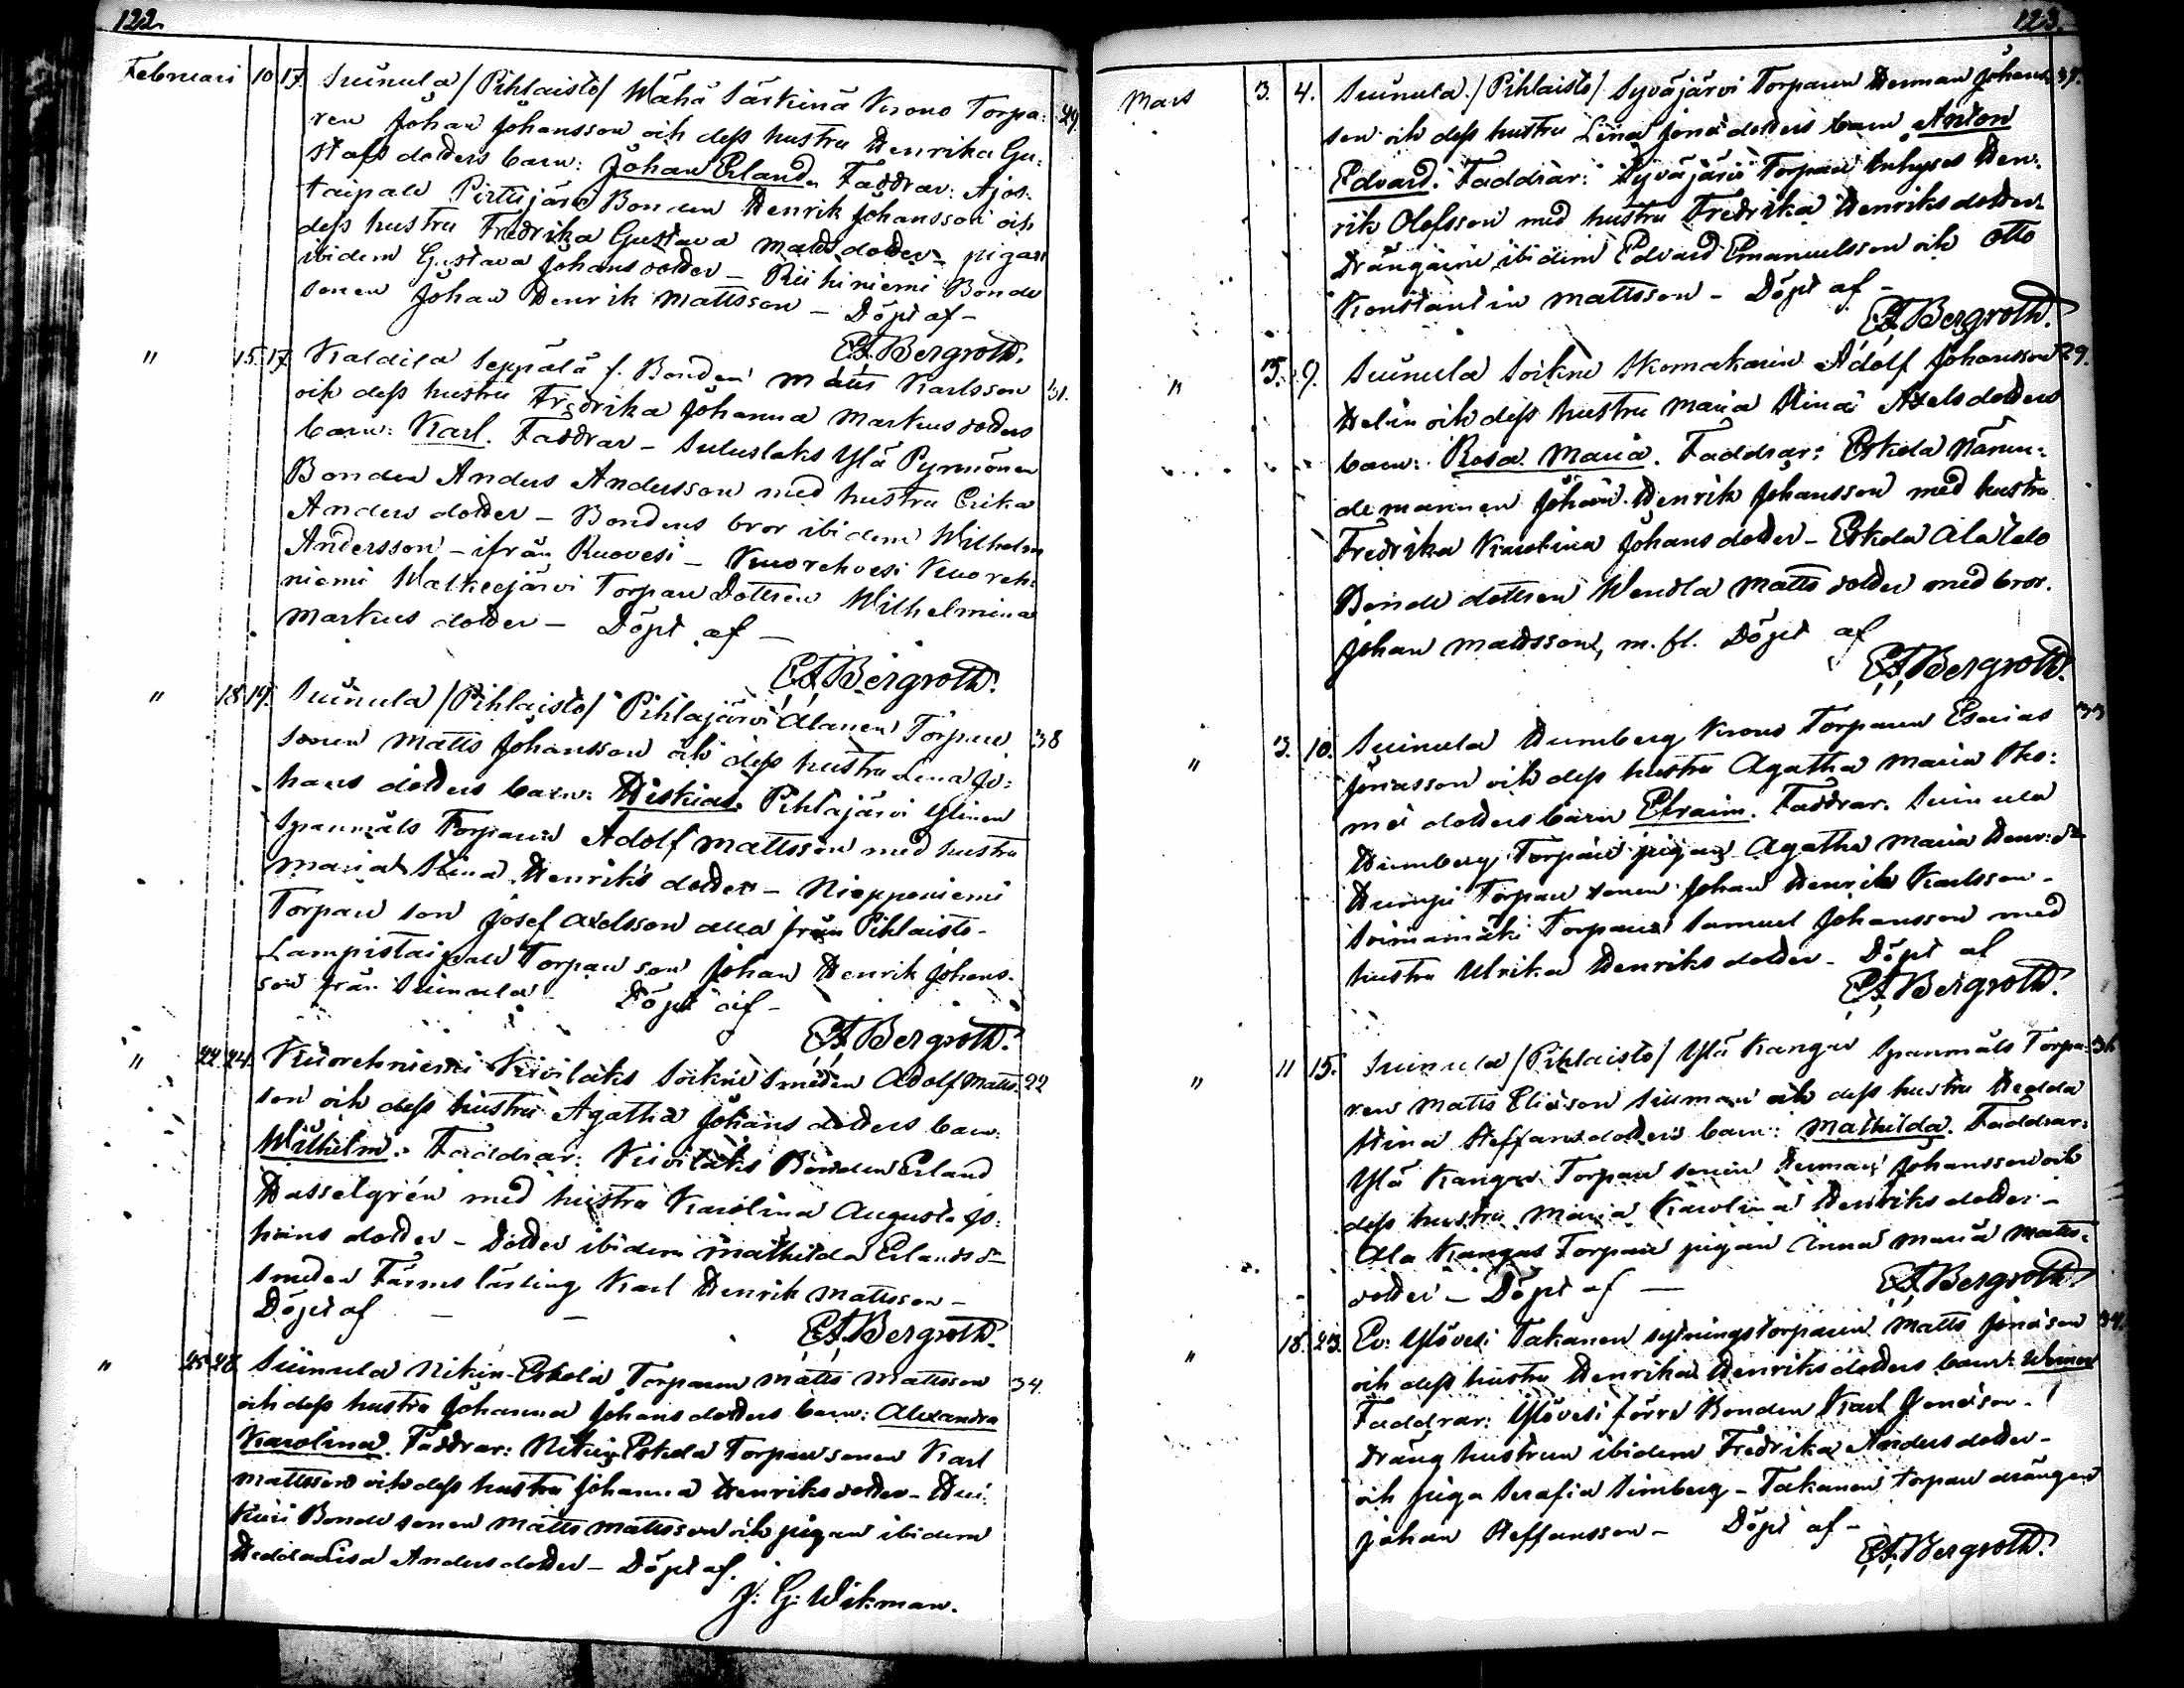 122.
Februari 10 17. Suinula /Pihlaisto/ Wähä Särkinä Krono Torpa: 29
ren Johan Johansson och dess hustru Henrika Gu:
stafs dotters barn: Johan Erland. Faddrar: Ajos:
taipale Pirttijärvi Bonden Henrik Johansson och
dess hustru Fredrika Gustava Matts dotter - pigan
ibidem Gustava Johans dotter - Riihiniemi Bonde
sonen Johan Henrik Mattsson - Döpt af -
EABergroth.
" 15. 17. Kaldila Seppälä f. Bonden Matts Karlsson 31.
och dess hustru Fredrika Johanna Markus dotters
barn: Karl. Faddrar - Suluslaks Ylä Pynnönen
Bonden Anders Andersson med hustru Erika
Anders dotter - Bondens bror ibidem Wilhelm
Andersson - ifrån Ruovesi - Kuorehvesi Kuoreh:
niemi Walkeejärvi Torpare Dottren Wilhelmina
Markus dotter - Döpt af -
EABergroth.
" 18 19. Suinula /Pihlaisto/ Pihlajärvi Alanen Torpare 38
sonen Matts Johansson och dess hustru Lena Jo:
hans dotters barn: Hiskias. Pihlajärvi Ylinen
Spanmåls Torparen Adolf Mattsson med hustru
Maria Stina Henriks dotter - Niepponiemi
Torpare son Josef Axelsson alla från Pihlaisto -
Lampistaipale Torpare son Johan Henrik Johans:
son från Suinula - Döpt af -
EABergroth.
" 22 24. Kuorehniemi Kivilaks Sockne Smeden Adolf Matts: 22
son och dess hustru Agatha Johans dotters barn:
Wilhelm. Faddrar: Kivilaks Bonden Erland
Hasselgrén med hustru Karolina Augusta Jo:
hans dotter - Dotter ibidem Mathilda Erlands dr
Smeden Färms lärling Karl Henrik Mattsson -
Döpt af - -
EABergroth.
" 25 28. Suinula Nikin-Eskola Torparen Matts Mattsson 34.
och dess hustru Johanna Johans dotters barn: Alexandra
Karolina. Faddrar: Nikin Eskola Torpare sonen Karl
Mattsson och dess hustru Johanna Henriks dotter - Hui:
kuri Bonde sonen Matts Mattsson och pigan ibidem
Hedda Lisa Anders dotter - Döpt af.
J: G: Wikman.
123.
Mars 3. 4. Suinula /Pihlaisto/ Syväjärvi Torparen Herman Johans: 39.
son och dess hustru Lena Jona dotters barn Anton
Edvard. Faddrar: Syväjärvi Torpare Inhyses Hen:
rik Olofsson med hustru Fredrika Henriks dotter
Drängarne ibidem Edvard Emanuelsson och Otto
Konstantin Mattsson - Döpt af -
EABergroth.
" 5. 9. Suinula Sockne Skomakaren Adolf Johansson 29.
Helin och dess hustru Maria Stina Axels dotters
barn: Rosa Maria. Faddrar: Eskola Nämn:
demannen Johan Henrik Johansson med hustru
Fredrika Karolina Johans dotter - Eskola Ala talo
Bonde dottren Wendla Matts dotter med bror.
Johan Mattsson, m. fl. Döpt af
EABergroth.
" 3. 10. Suinula Humberg Krono Torparen Esaias 33
Jonasson och dess hustru Agatha Maria Tho:
mæ dotters barn Efraim. Faddrar: Suinula
Humberg Torpare pigan Agatha Maria Henr: dr
Humpi Torpare sonen Johan Henrik Karlsson -
Soimamäki Torparen Samuel Johansson med
hustru Ulrika Henriks dotter - Döpt af
EABergroth.
" 11 15. Suinula /Pihlaisto/ Ylä Kangas Spanmåls Torpa: 36
ren Matts Eliasson Siuman och dess hustru Hedda
Stina Steffans dotters barn: Mathilda. Faddrar:
Ylä Kangas Torpare sonen Herman Johansson och
dess hustru Maria Karolina Henriks dotter -
Ala Kangas Torpare pigan Anna Maria Matts:
dotter - Döpt af -
EABergroth.
" 18. 23. Ev: Ylövesi Takanen sytningstorparen Matts Jonasson 34.
och dess hustru Henrika Henriks dotters barn: Werner
Faddrar: Ylövesi förre Bonden Karl Jonasson -
Dräng hustrun ibidem Fredrika Anders dotter -
och piga Serafia Simberg - Takanen torpare drängen
Johan Steffansson - Döpt af -
EABergroth.